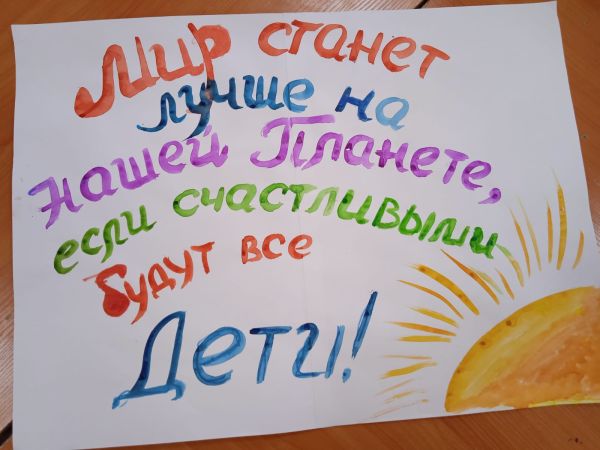 Мир станет
лучше на
нашей Планете,
если счастливыми
будут все
Дети!